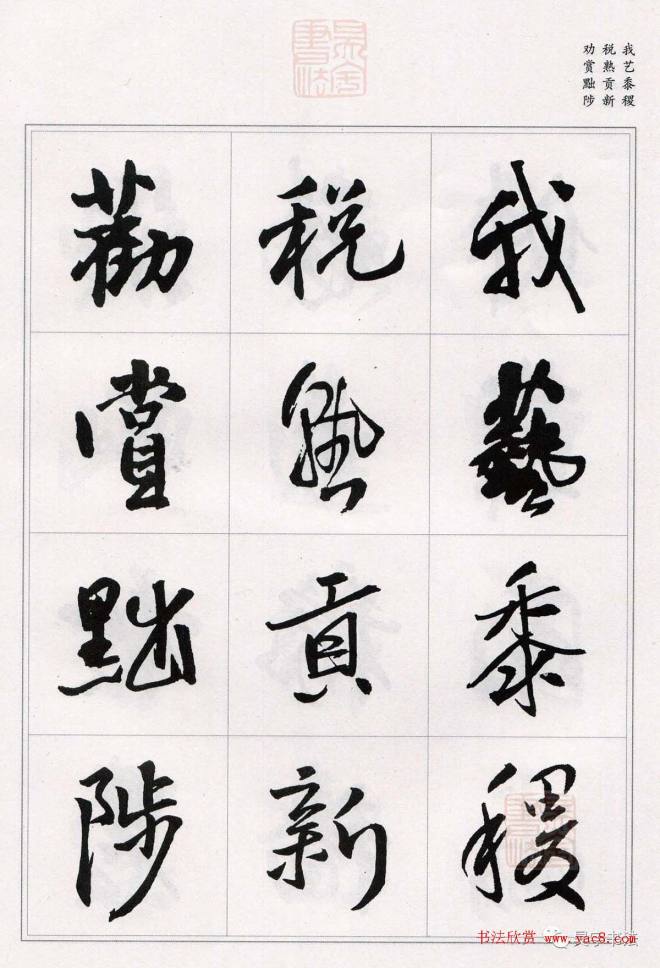 我艺黍稷
税熟贡新
劝赏黜陟
我藝黍稷
税熟貢新
勸賞黜陟
书法欣赏 www.yac8.com